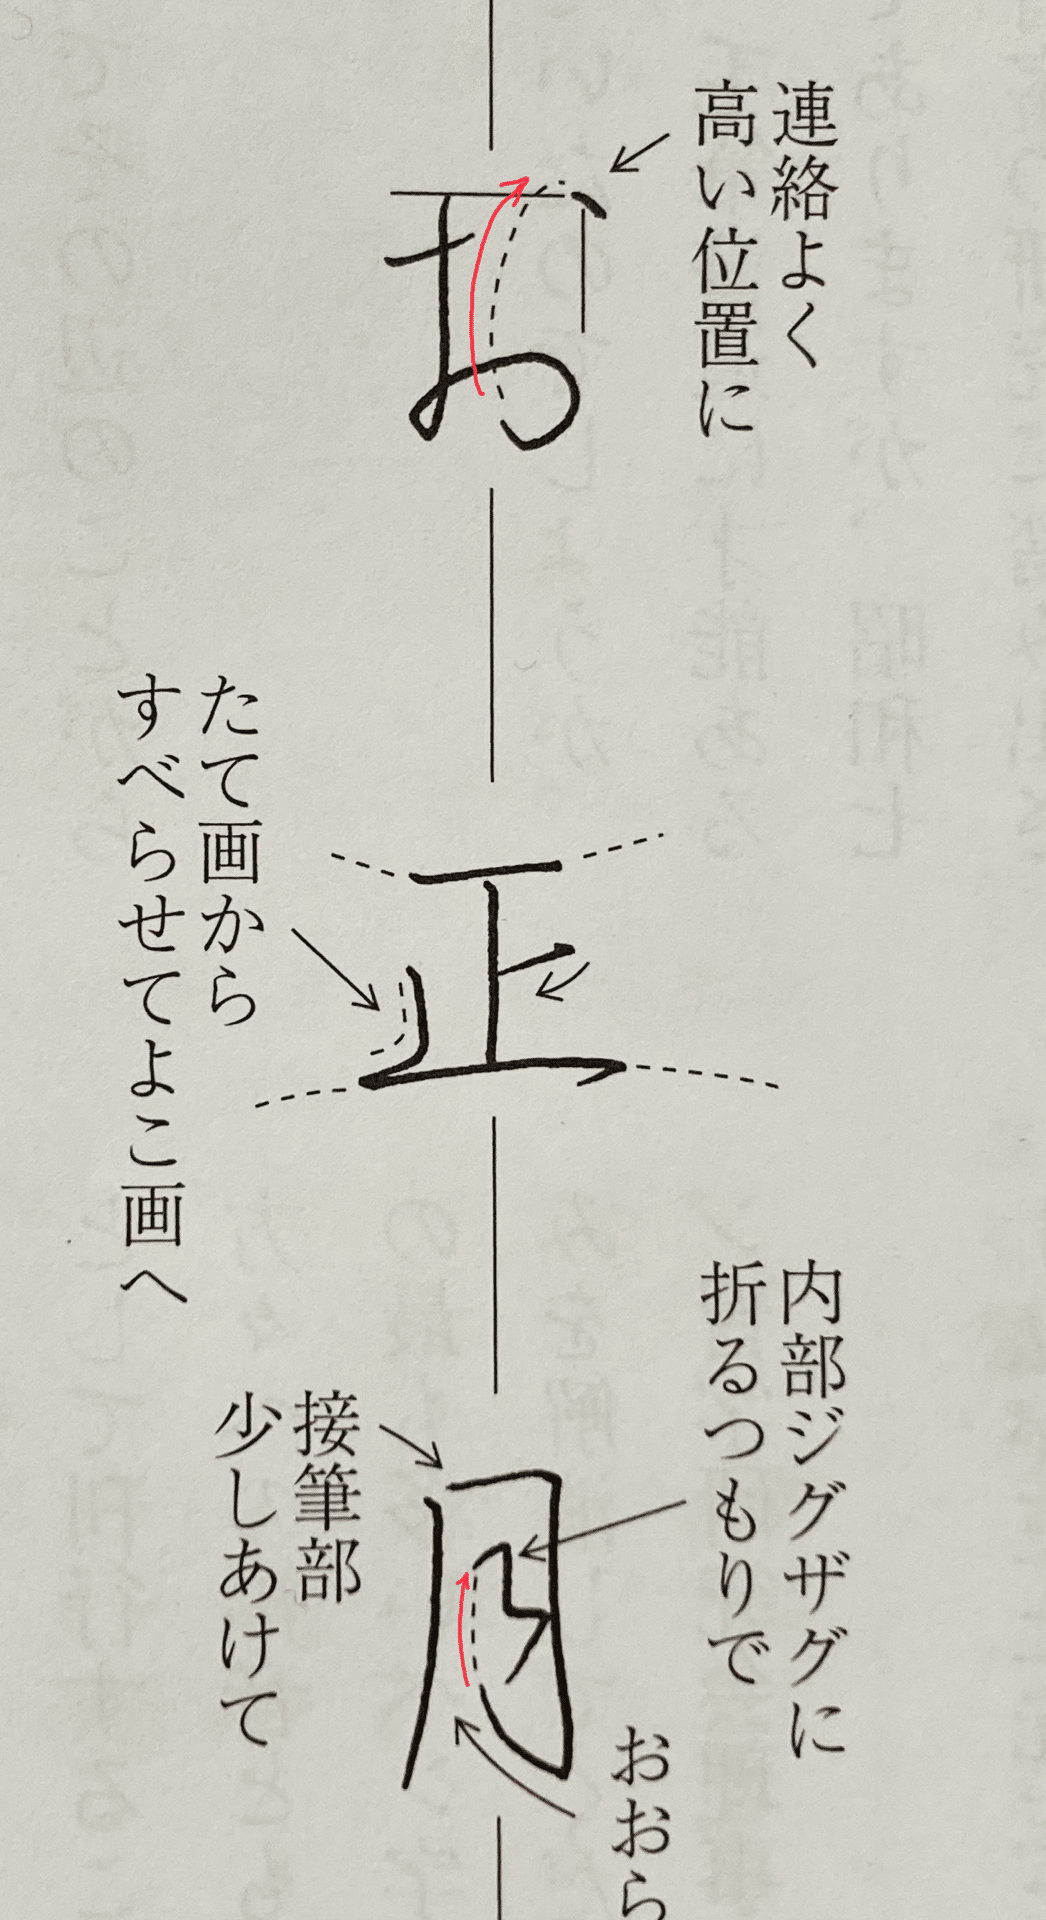 連絡よく
高い位置に
お
たて画から
すべらせてよこ画へ
正
内部ジグザグに
折るつもりで
接筆部
少しあけて
月
おおら